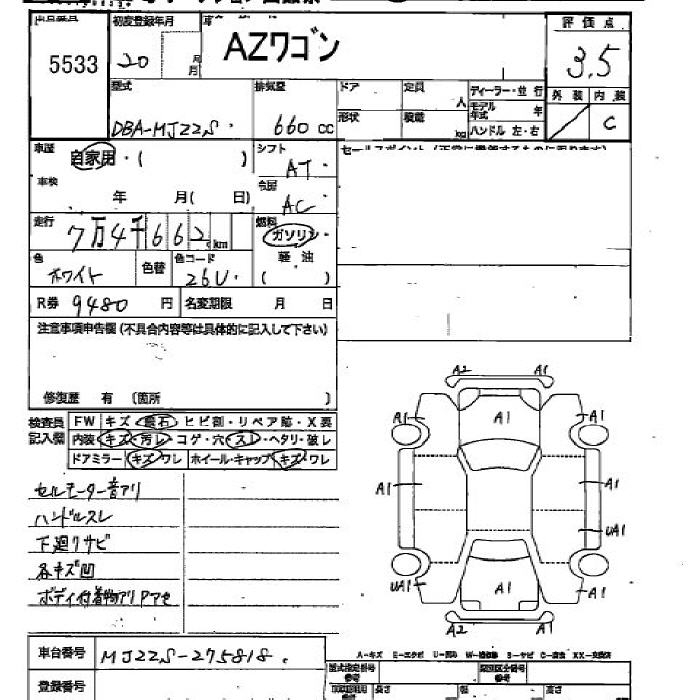 出品番号 初度登録年月 評価点
5533 20 月 月 AZワゴン 3.5
型式 排気量 ドア 定員 人 ディーラー・並行 外装 内装
DBA-MJ22S 660cc 形状 積載 kg モデル年式 年 C
ハンドル 左・右
車歴 自家用・( ) シフト AT セールスポイント
車検 年 月( 日) 冷房 AC
走行 7万4千662km 燃料 ガソリン
色 ホワイト 色替 色コード 26U 軽油 ( )
R券 9480 円 名変期限 月 日
注意事項申告欄(不具合内容等は具体的に記入して下さい)
修復歴 有 (箇所 )
検査員記入欄 FW キズ・飛石・ヒビ割・リペア跡・X要
内装 キズ・汚レ・コゲ・穴・スレ・ヘタリ・破レ
ドアミラー キズ・ワレ ホイール・キャップ キズ・ワレ
セルモーター音アリ
ハンドルスレ
下廻リサビ
各キズ凹
ボディ付着物アリ Pアセ
A2 A1
A1 A1 A1
A1 A1
UA1
UA1 A1 A1
A2 A1
車台番号 MJ22S-275818
A-キズ E-エクボ U-凹み W-補修跡 S-サビ C-腐食 XX-交換済
登録番号 型式指定番号 類別区分番号
長さ 幅 高さ